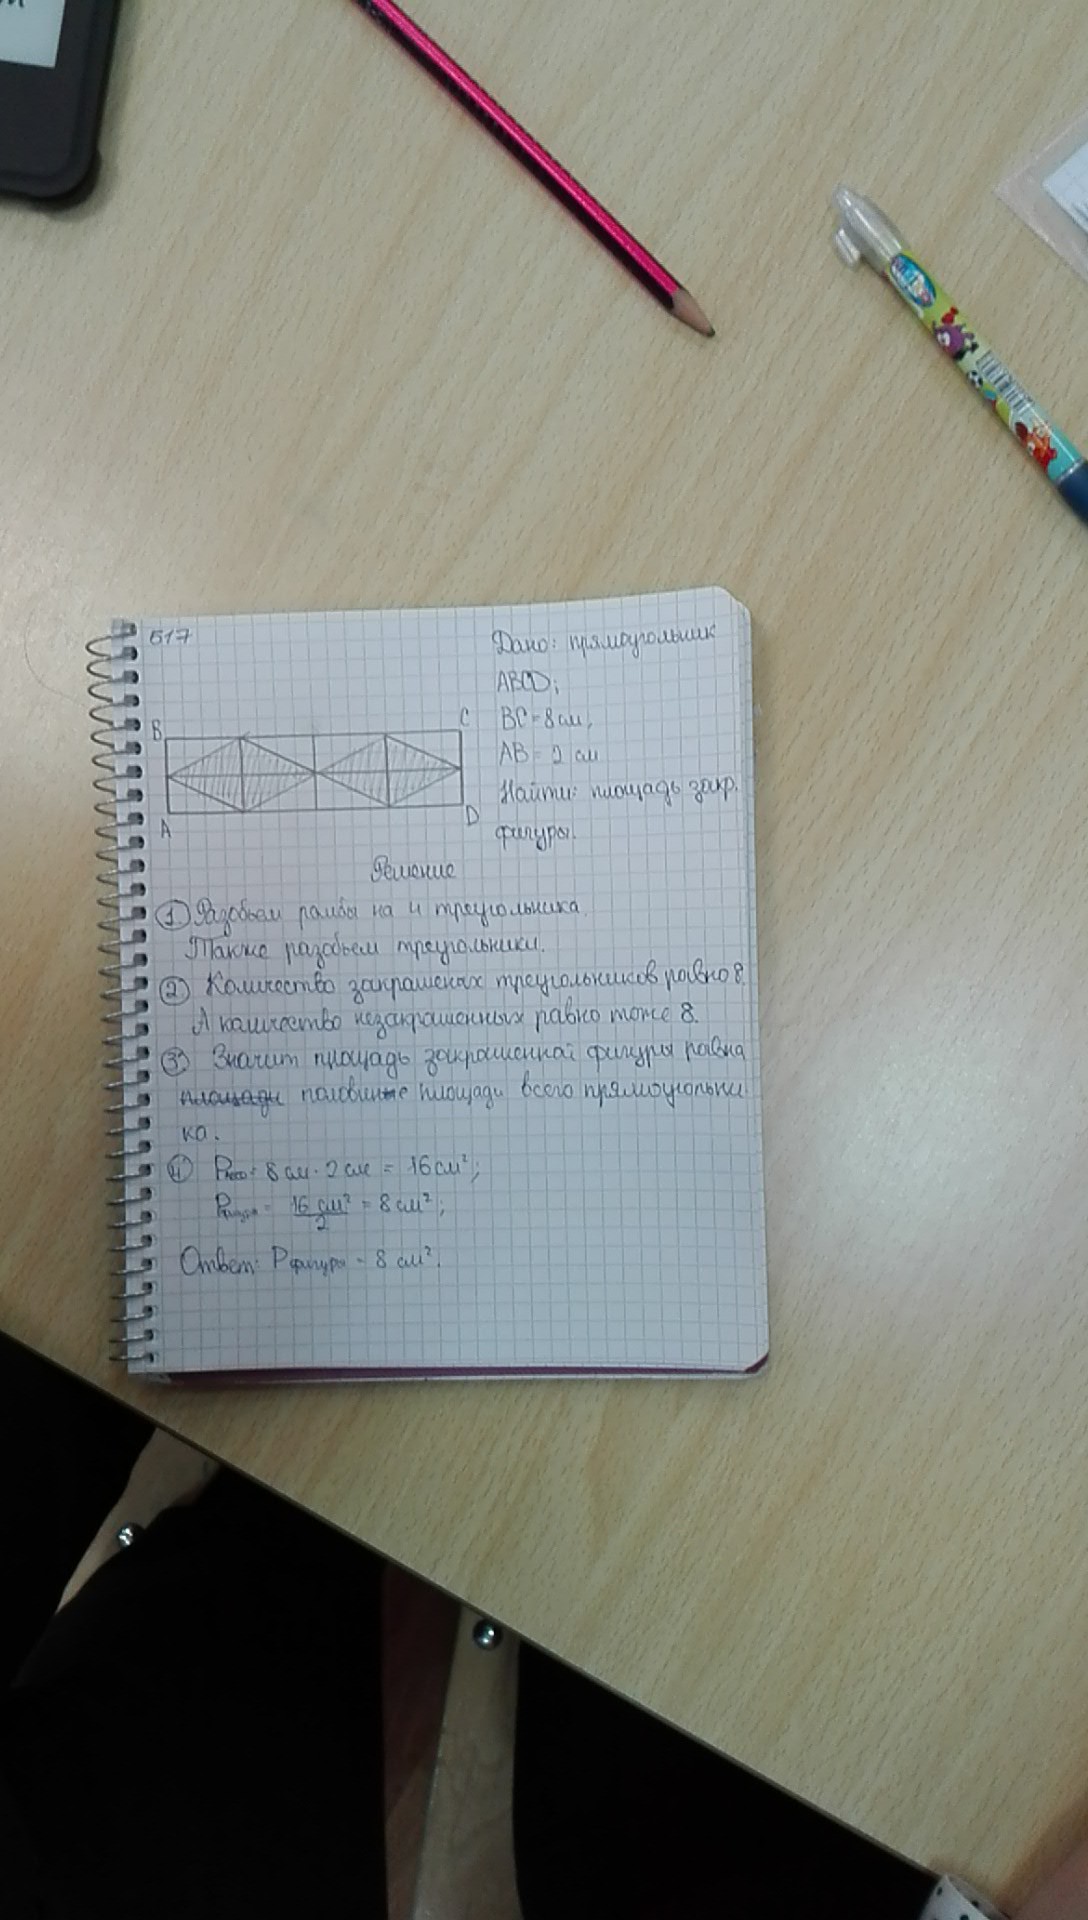 517
Дано: прямоугольник
ABCD;
BC = 8 см,
AB = 2 см
Найти: площадь закр.
фигуры.
B
C
A
D
Решение
① Разобьем ромбы на 4 треугольника.
Также разобьем треугольники.
② Количество закрашеных треугольников равно 8.
А количество незакрашенных равно тоже 8.
③ Значит площадь закрашенной фигуры равна
площади половине площади всего прямоугольни
ка.
④ P = 8 см · 2 см = 16 см²;
P = 16 см²/2 = 8 см²;
Ответ: P фигуры = 8 см².